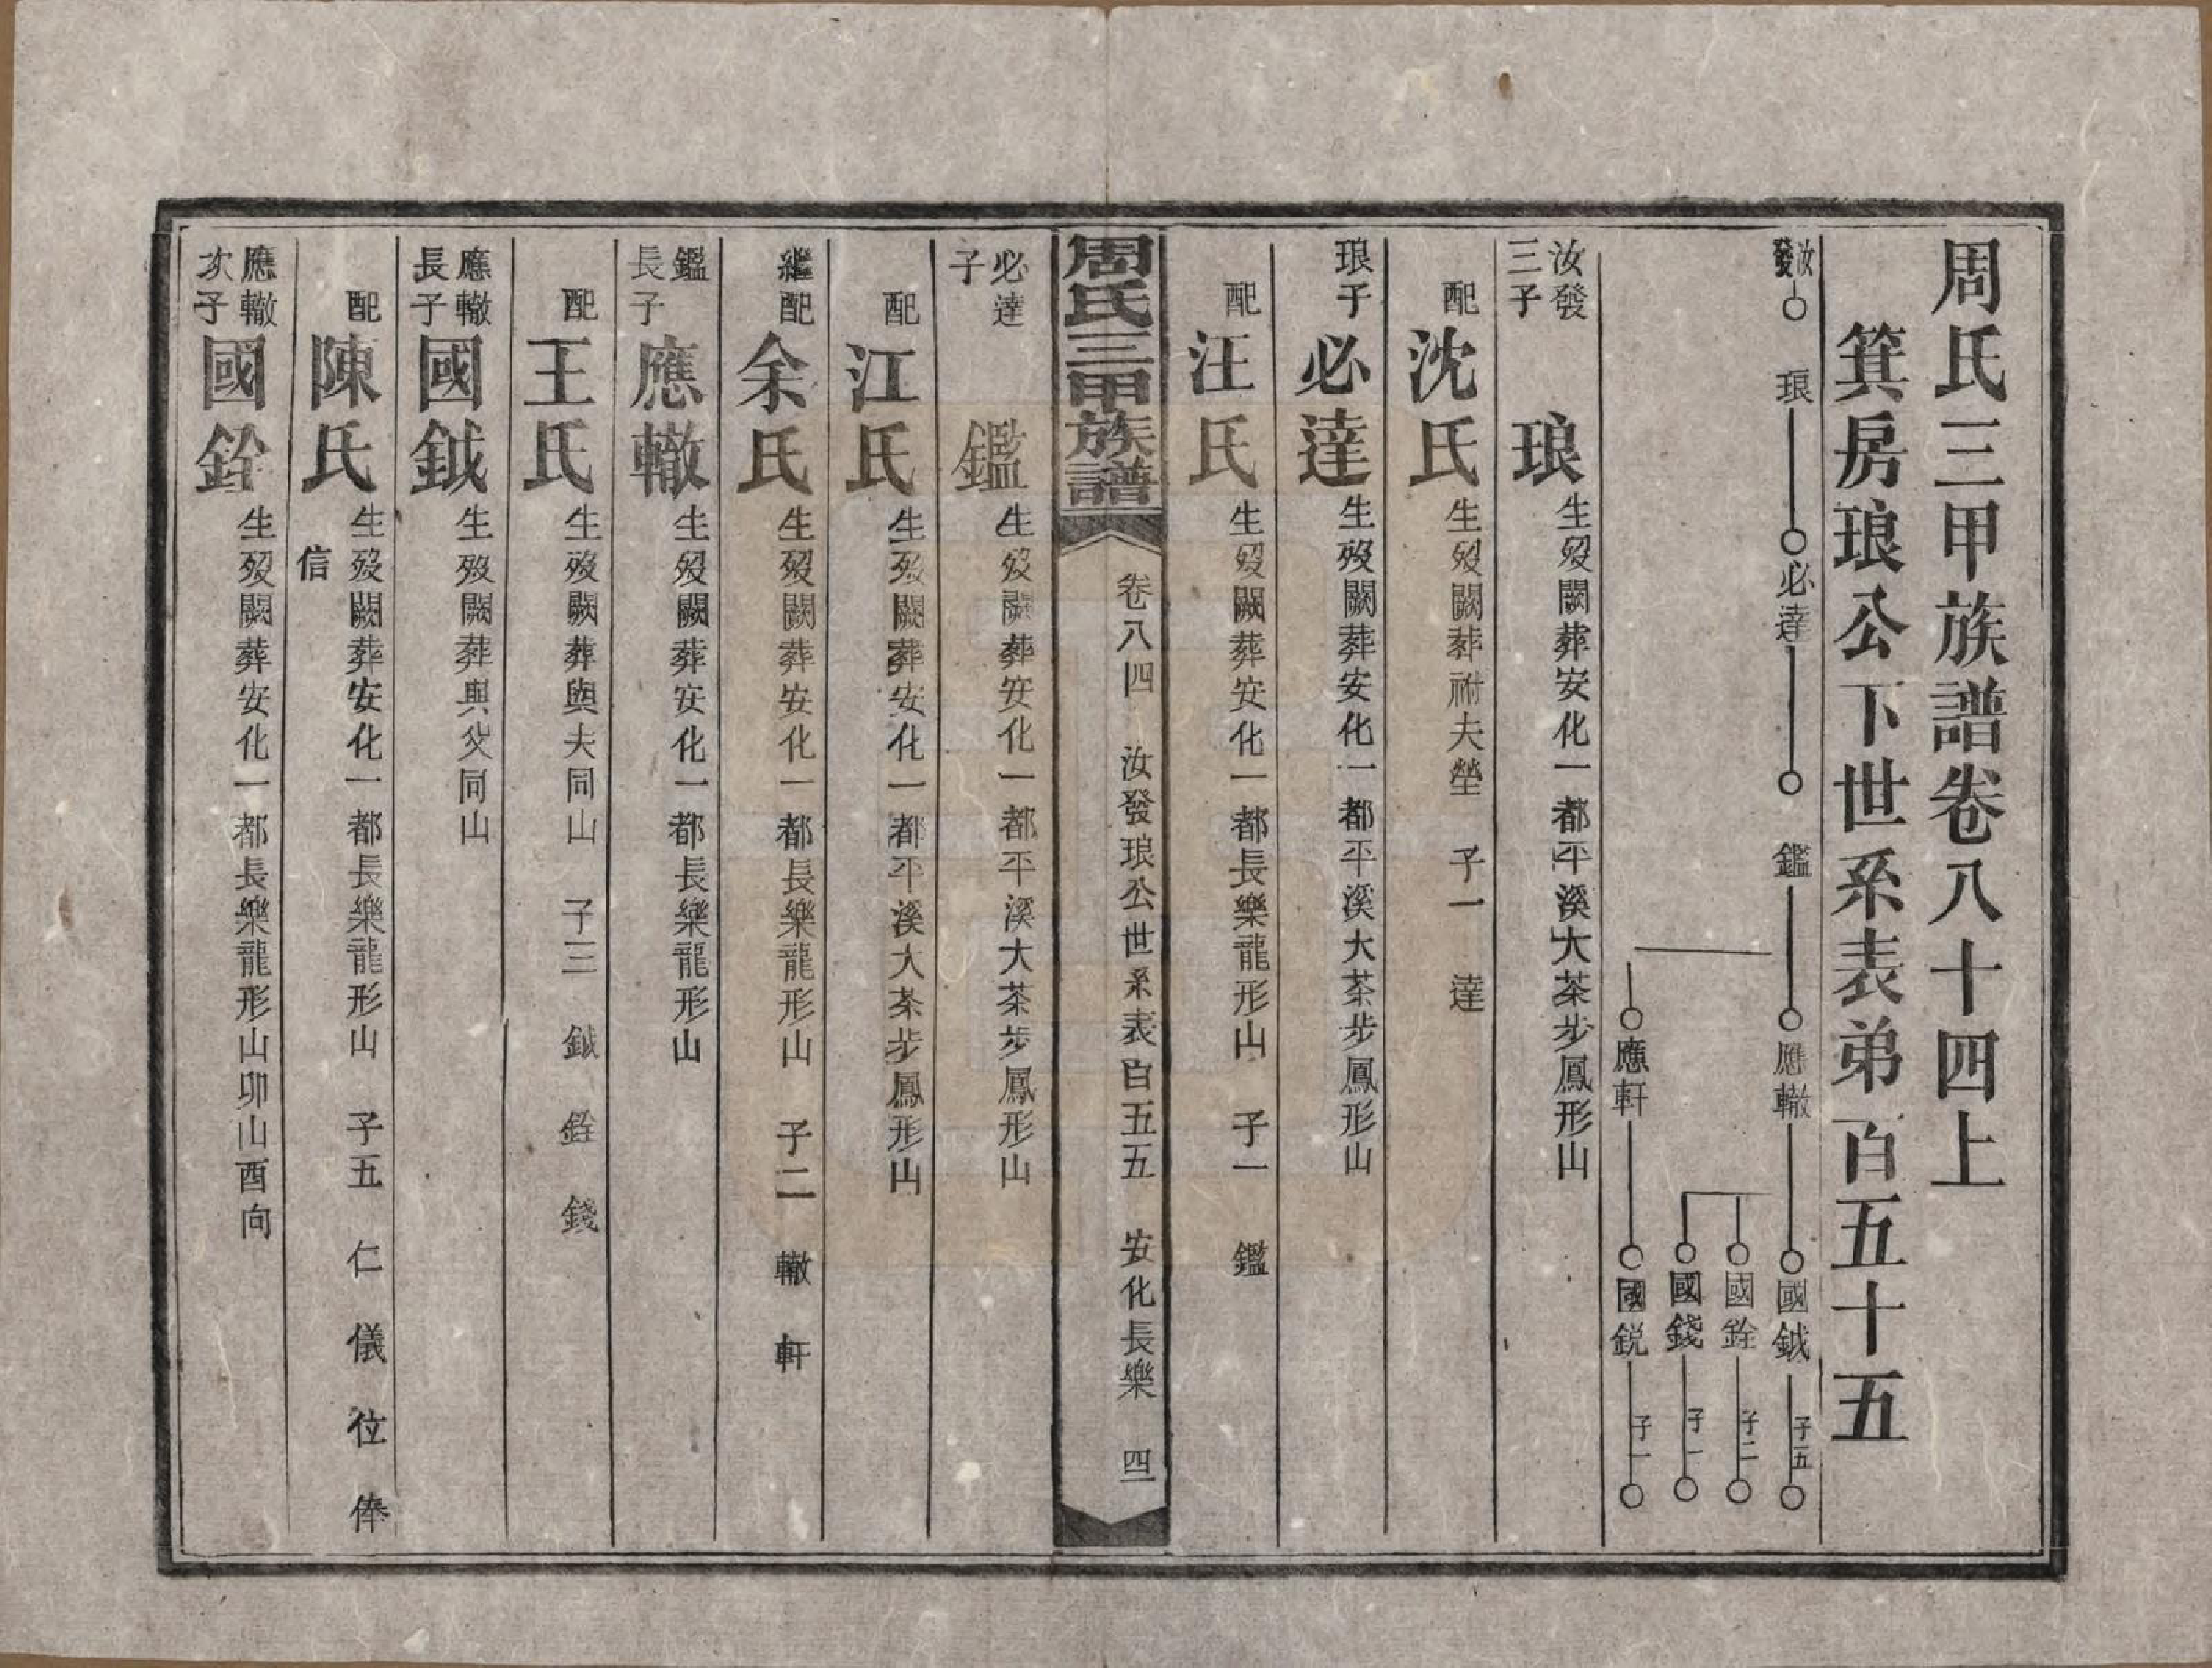 周氏三甲族譜卷八十四上
箕房琅公下世系表弟百五十五
汝發 琅 必達 鑑 應轍 國鉞 子五
國銓 子二
國錢 子一
應軒 國銳 子一
汝發三子 琅 生歿闕葬安化一都平溪大茶步鳳形山
配 沈氏 生歿闕葬祔夫塋 子一 達
琅子 必達 生歿闕葬安化一都平溪大茶步鳳形山
配 汪氏 生歿闕葬安化一都長樂龍形山 子一 鑑
周氏三甲族譜 卷八四 汝發琅公世系表百五五 安化長樂 四
必達子 鑑 生歿闕葬安化一都平溪大茶步鳳形山
配 江氏 生歿闕葬安化一都平溪大茶步鳳形山
繼配 余氏 生歿闕葬安化一都長樂龍形山 子二 轍 軒
鑑長子 應轍 生歿闕葬安化一都長樂龍形山
配 王氏 生歿闕葬與夫同山 子三 鉞 銓 錢
應轍長子 國鉞 生歿闕葬與父同山
配 陳氏 生歿闕葬安化一都長樂龍形山 子五 仁 儀 位 俸
信
應轍次子 國銓 生歿闕葬安化一都長樂龍形山卯山酉向